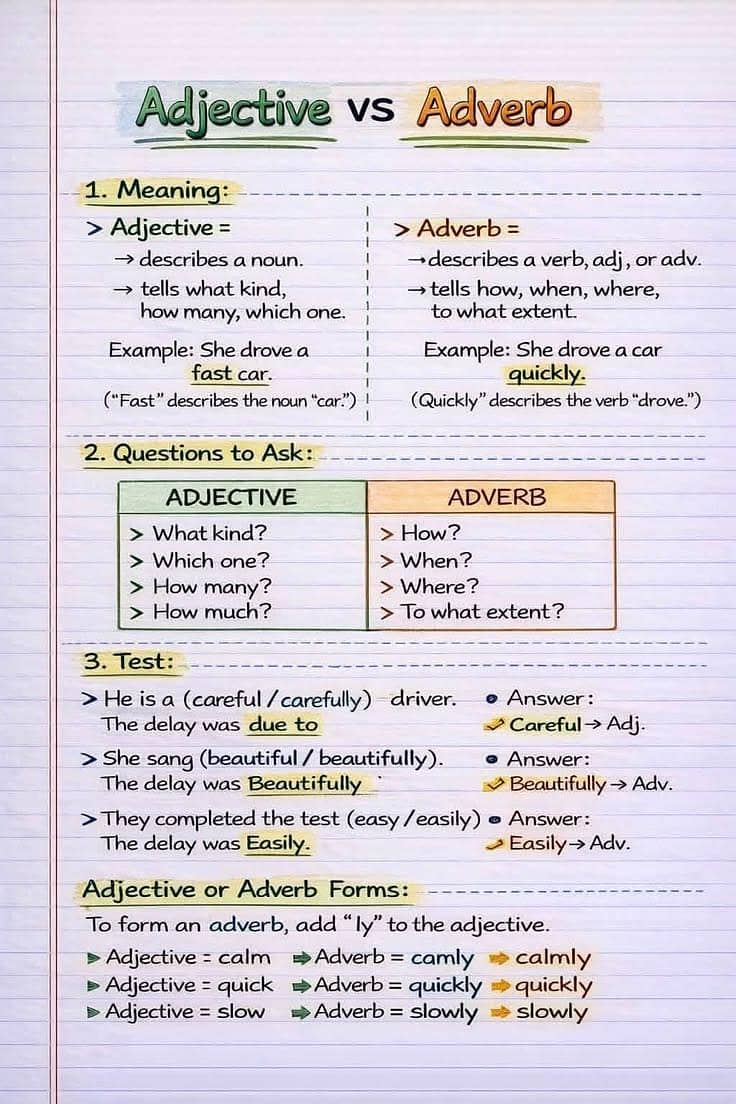 Adjective vs Adverb
1. Meaning:
> Adjective =
→ describes a noun.
→ tells what kind,
how many, which one.
Example: She drove a
fast car.
("Fast" describes the noun "car.")
> Adverb =
→describes a verb, adj, or adv.
→tells how, when, where,
to what extent.
Example: She drove a car
quickly.
(Quickly" describes the verb "drove.")
2. Questions to Ask:
ADJECTIVE
> What kind?
> Which one?
> How many?
> How much?
ADVERB
> How?
> When?
> Where?
> To what extent?
3. Test:
> He is a (careful / carefully) driver. • Answer:
The delay was due to ✓ Careful → Adj.
> She sang (beautiful / beautifully). • Answer:
The delay was Beautifully ✓ Beautifully → Adv.
> They completed the test (easy / easily) • Answer:
The delay was Easily. ✓ Easily → Adv.
Adjective or Adverb Forms:
To form an adverb, add "ly" to the adjective.
➤ Adjective = calm ➡ Adverb = camly ➡ calmly
➤ Adjective = quick ➡ Adverb = quickly ➡ quickly
➤ Adjective = slow ➡ Adverb = slowly ➡ slowly